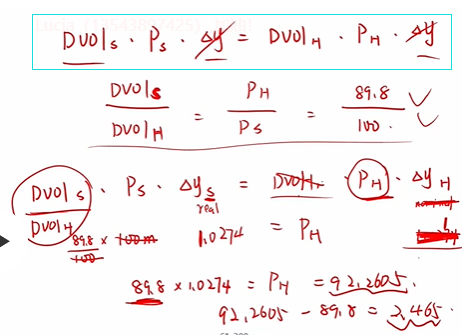 DVOLs · Ps · Δy = DVOLH · PH · Δy
DVOLs / DVOLH = PH / Ps = 89.8 / 100.
DVOLs / DVOLH · Ps · Δys = DVOLH · PH · ΔyH
real nominal
89.8 / 100 × 100m 1.0274 = PH
89.8 × 1.0274 = PH = 92.2605.
92.2605 - 89.8 = 2.465